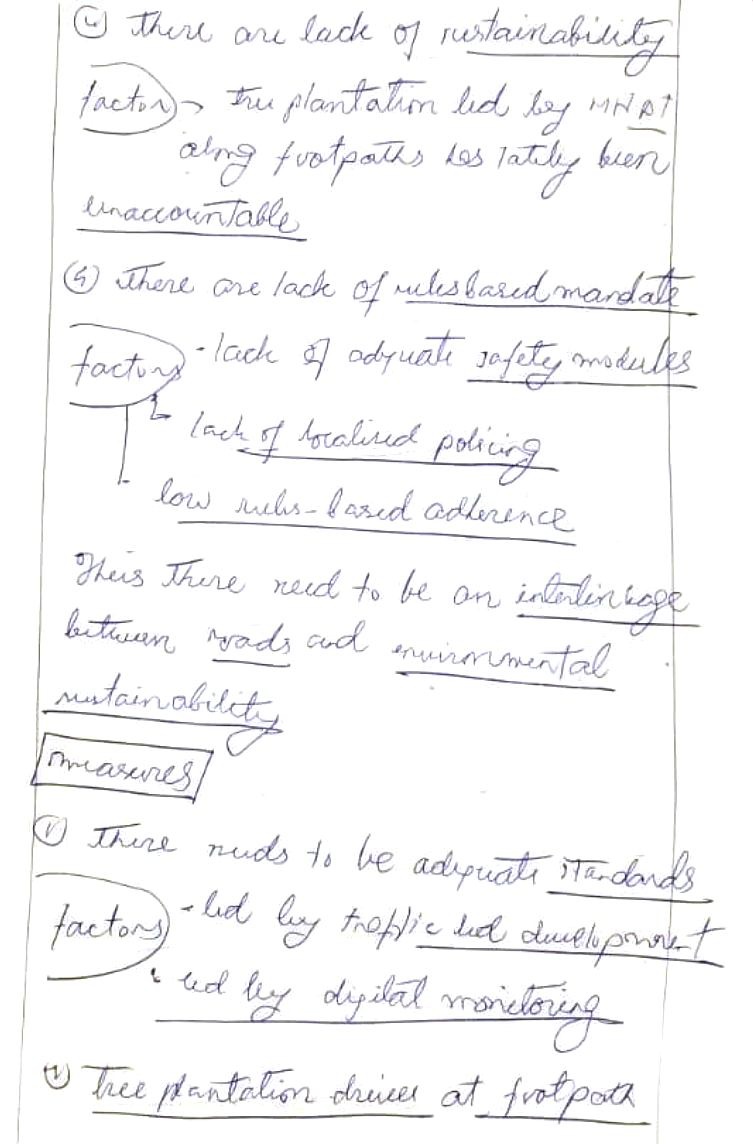 ④ there are lack of sustainability
factors → tree plantation led by
along footpaths has lately been
unaccountable
⑤ there are lack of rules based mandate
factors - lack of adequate safety modules
lack of localised policing
low rules-based adherence
Thus there need to be an interlinkage
between roads and environmental
sustainability
measures
① there needs to be adequate standards
factors - led by traffic led development
led by digital monitoring
② Tree plantation drives at footpath